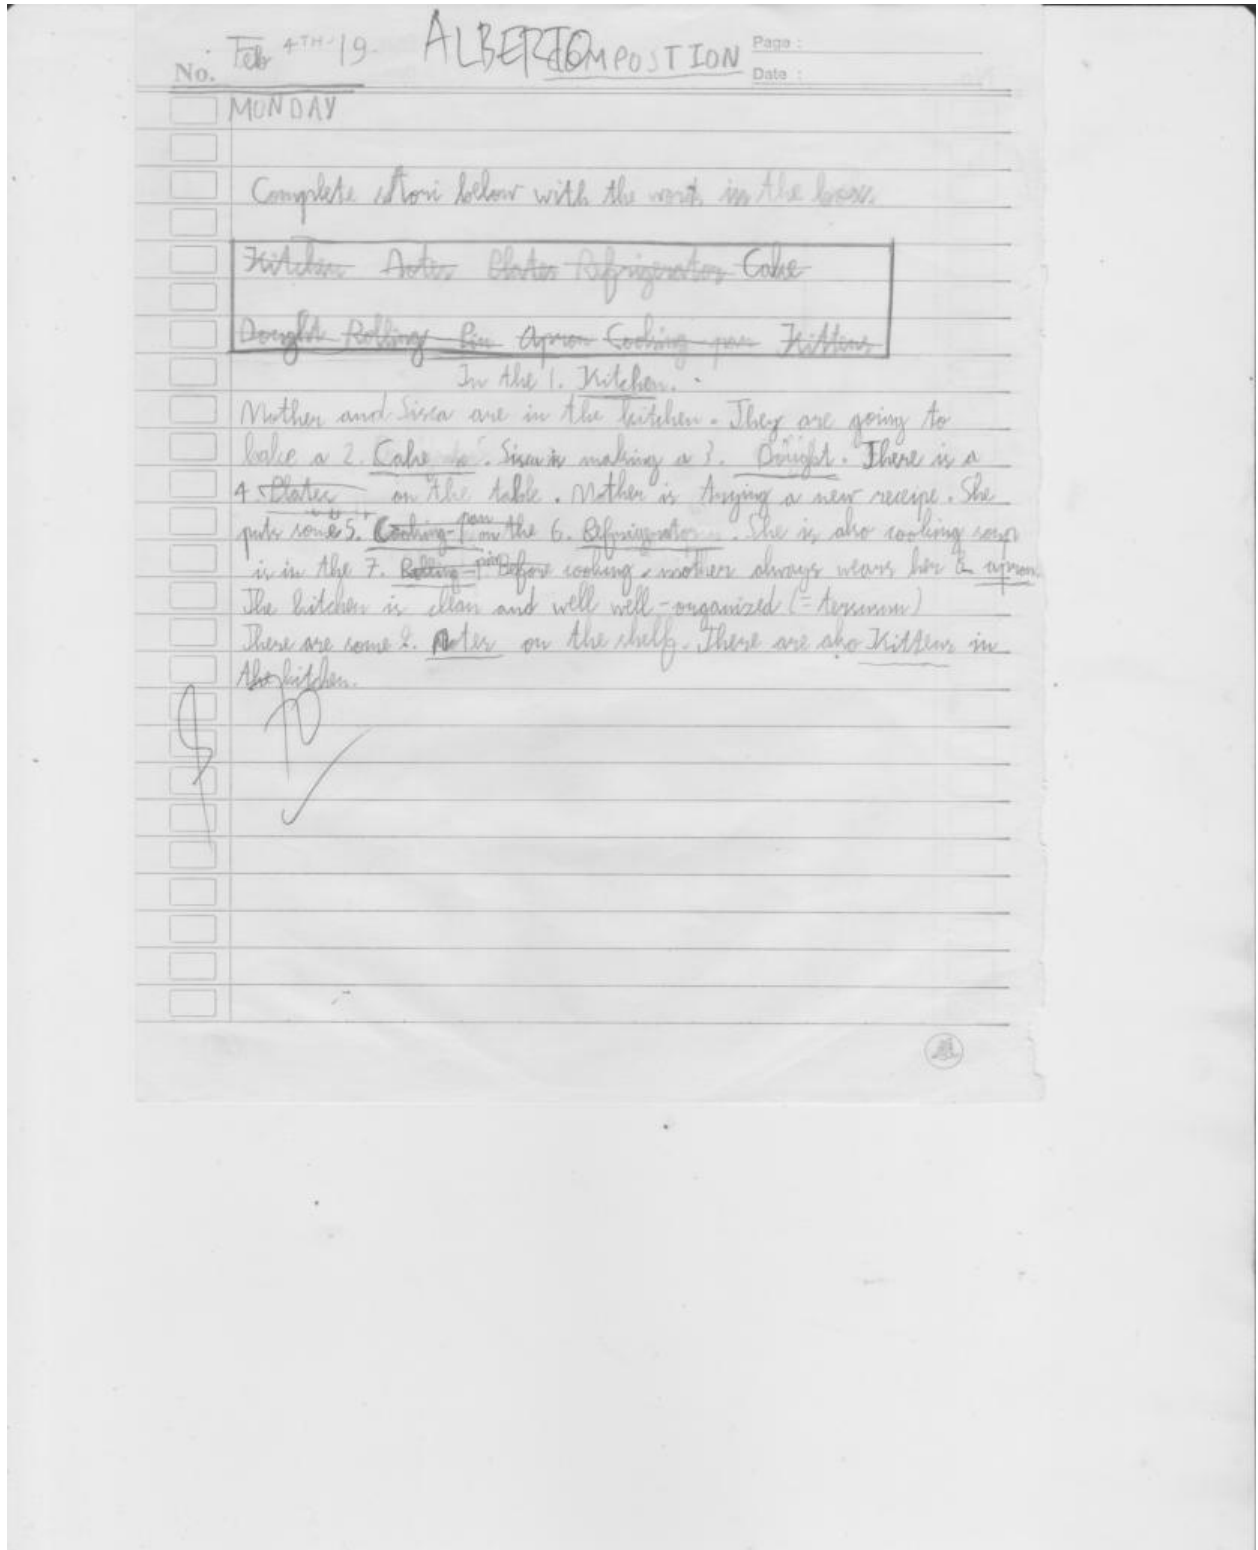 Feb 4TH-19. ALBERTO COMPOSTION Page :
No. Date :
MONDAY
Complete stori below with the words in the box.
Kitchen Notes Plates Refrigerator Cake
Dought Rolling Pin Apron Cooking pan Kittens
In the 1. Kitchen.
Mother and Sisca are in the kitchen. They are going to
bake a 2. Cake. Sisca is making a 3. Dought. There is a
4. Plates on the table. Mother is trying a new receipe. She
puts some 5. Cooking-pan on the 6. Refrigerator. She is also cooking soup
is in the 7. Rolling-pin Before cooking, mother always wears her 8. apron.
The kitchen is clean and well well-organized (=
There are some 9. Notes on the shelf. There are also Kittens in
the kitchen.
10